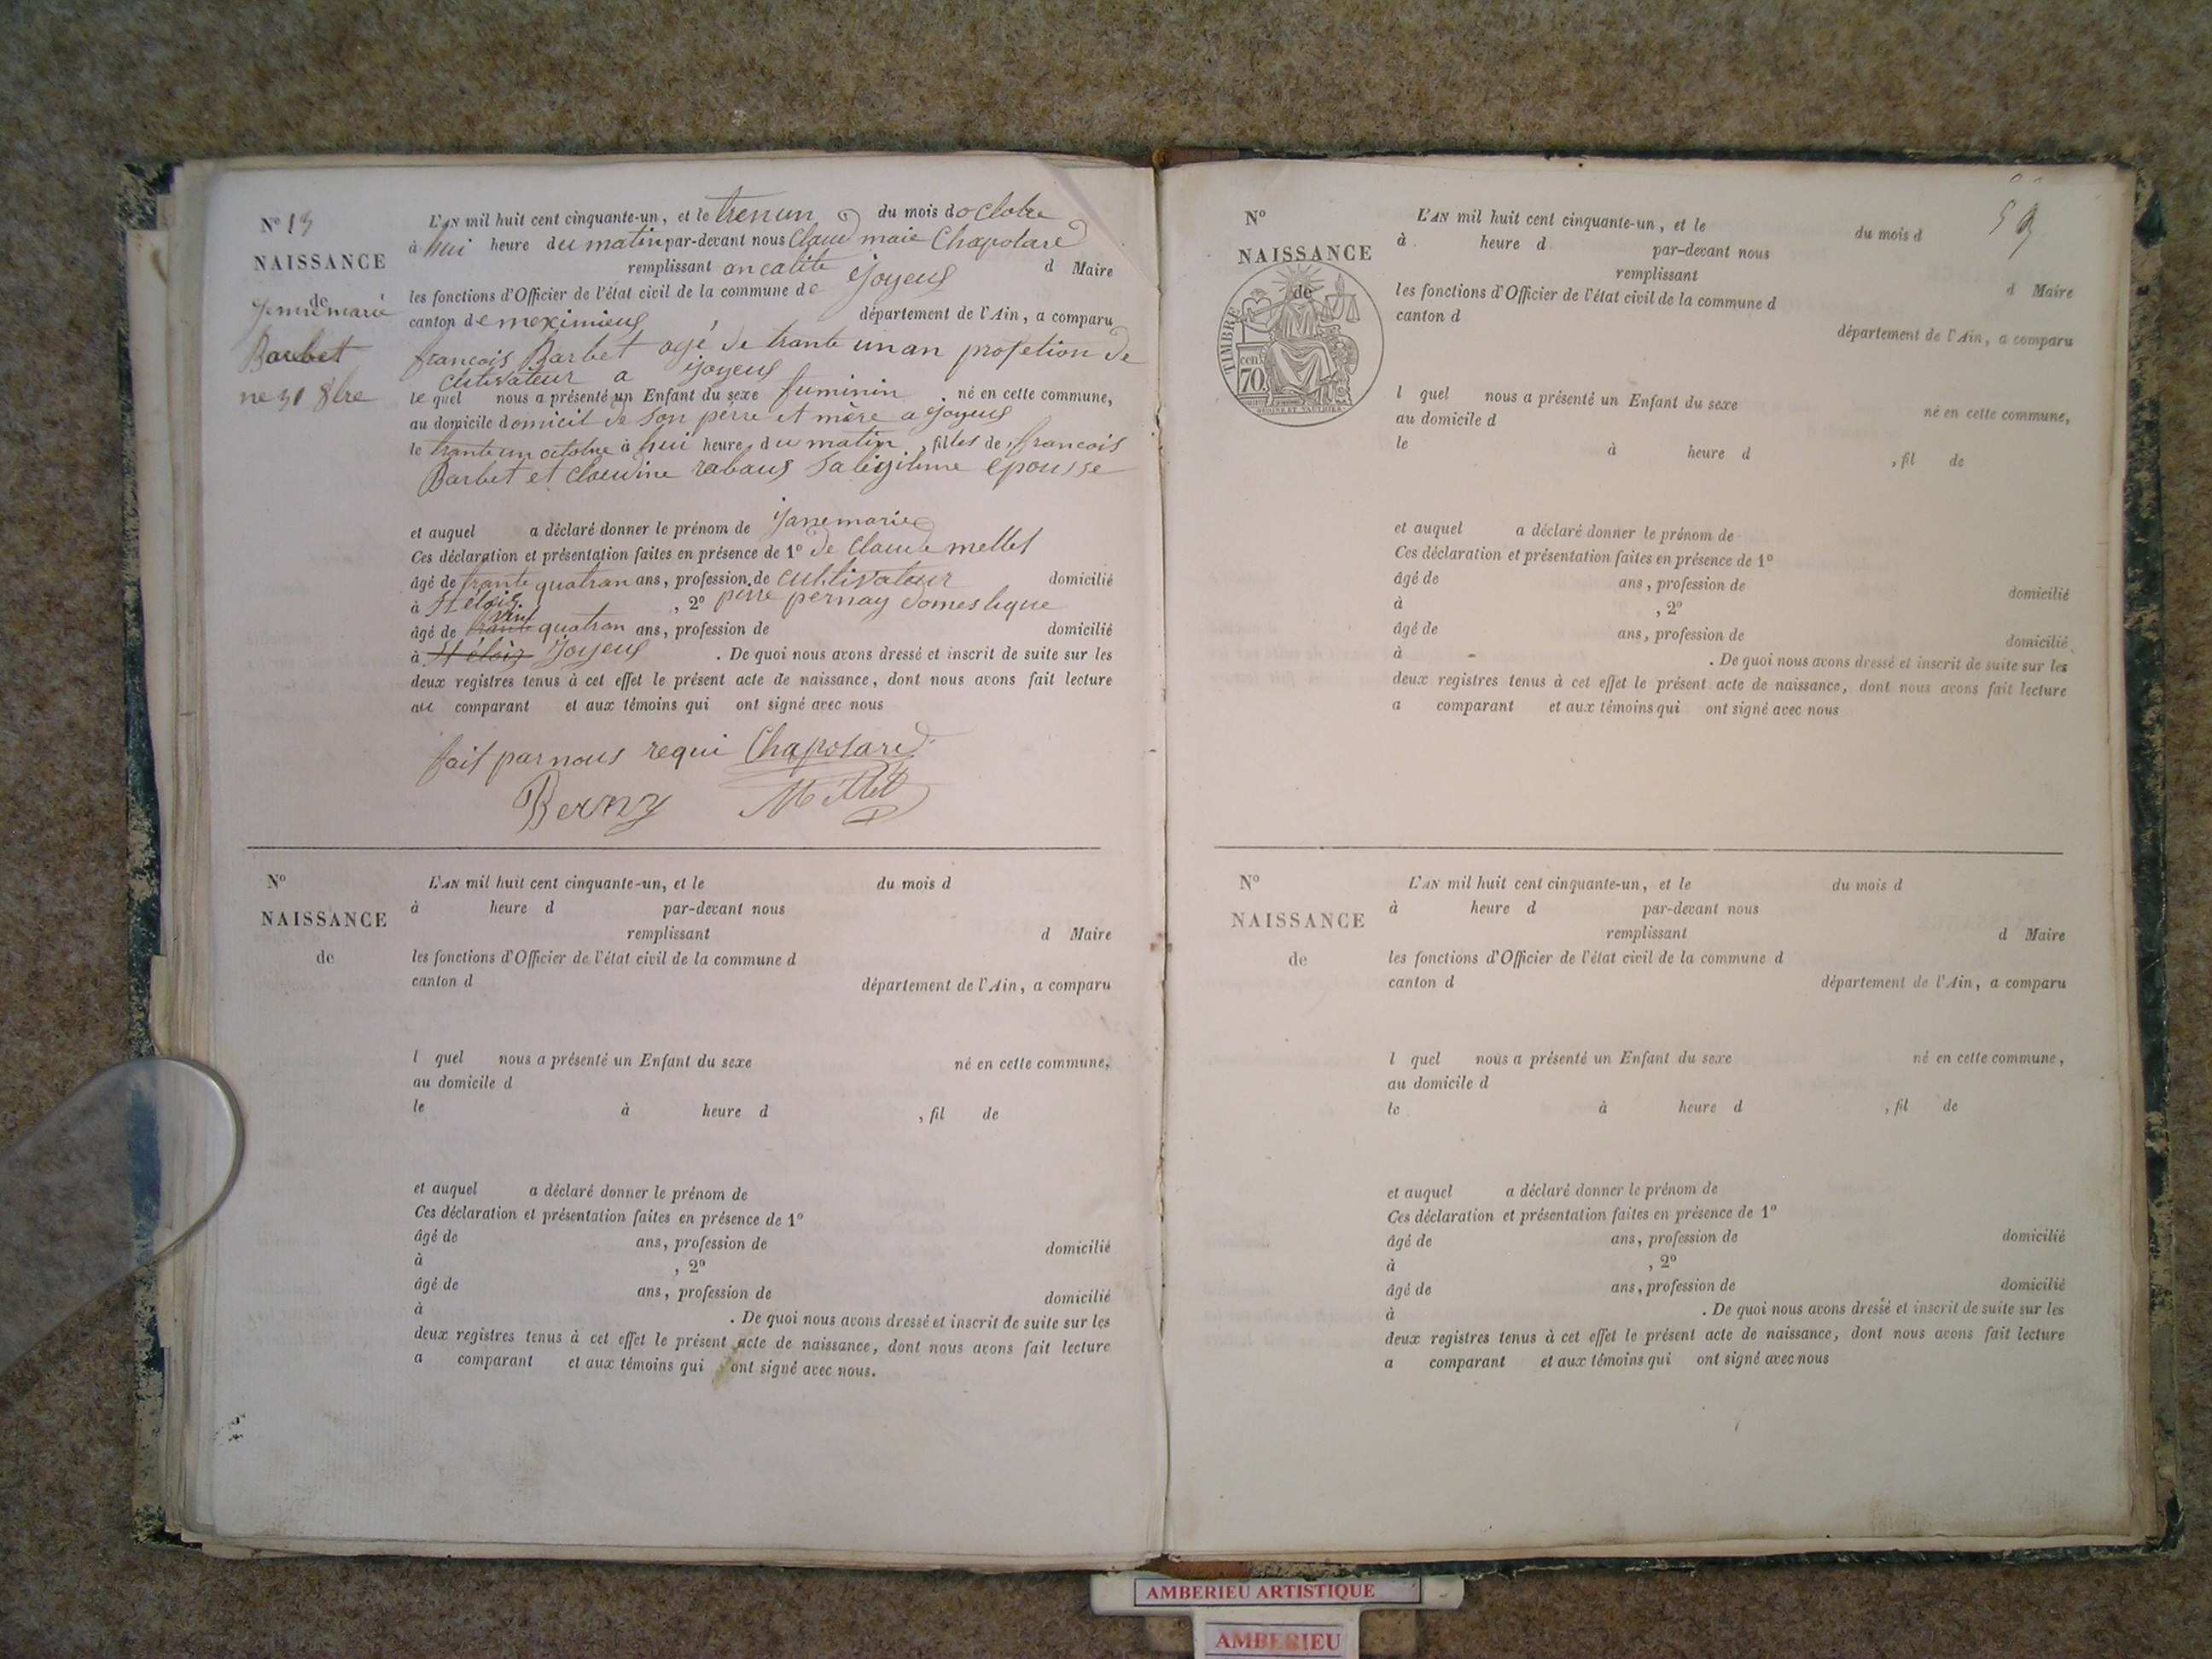 N° 13
NAISSANCE
de
Jennemarie
Barbet
ne 31 8bre
L'AN mil huit cent cinquante-un, et le trenun du mois doctobre
à hui heure du matin par-devant nous Claud maie Chapolard
remplissant ancalité d Maire
les fonctions d'Officier de l'état civil de la commune de Joyeux
canton de meximieux, département de l'Ain, a comparu
francois Barbet agé de trante un an profetion de
cultivateur a Joyeux
le quel nous a présenté un Enfant du sexe fuminin né en cette commune,
au domicile domicil de son perre et mère a Joyeux
le tranteun octobre à hui heure du matin, filles de francois
Barbet et Claudine rabaux sa légitime epousse
et auquel a déclaré donner le prénom de Janemarie
Ces déclaration et présentation faites en présence de 1° de Claude mellet
âgé de trante quatran ans, profession de cultivateur domicilié
à St éloix, 2° pierre pernay domestique
âgé de trante vint quatran ans, profession de domicilié
à St éloix Joyeux. De quoi nous avons dressé et inscrit de suite sur les
deux registres tenus à cet effet le présent acte de naissance, dont nous avons fait lecture
au comparant et aux témoins qui ont signé avec nous
fait par nous requi Chapolard
Berny Mellet
N°
NAISSANCE
de
L'AN mil huit cent cinquante-un, et le du mois d
à heure d par-devant nous
remplissant d Maire
les fonctions d'Officier de l'état civil de la commune d
canton d département de l'Ain, a comparu
l quel nous a présenté un Enfant du sexe né en cette commune,
au domicile d
le à heure d , fil de
et auquel a déclaré donner le prénom de
Ces déclaration et présentation faites en présence de 1°
âgé de ans, profession de domicilié
à , 2°
âgé de ans, profession de domicilié
à . De quoi nous avons dressé et inscrit de suite sur les
deux registres tenus à cet effet le présent acte de naissance, dont nous avons fait lecture
a comparant et aux témoins qui ont signé avec nous.
N°
NAISSANCE
de
TIMBRE
cen
70
L'AN mil huit cent cinquante-un, et le du mois d
à heure d par-devant nous
remplissant d Maire
les fonctions d'Officier de l'état civil de la commune d
canton d département de l'Ain, a comparu
l quel nous a présenté un Enfant du sexe né en cette commune,
au domicile d
le à heure d , fil de
et auquel a déclaré donner le prénom de
Ces déclaration et présentation faites en présence de 1°
âgé de ans, profession de domicilié
à , 2°
âgé de ans, profession de domicilié
à . De quoi nous avons dressé et inscrit de suite sur les
deux registres tenus à cet effet le présent acte de naissance, dont nous avons fait lecture
a comparant et aux témoins qui ont signé avec nous
N°
NAISSANCE
de
L'AN mil huit cent cinquante-un, et le du mois d
à heure d par-devant nous
remplissant d Maire
les fonctions d'Officier de l'état civil de la commune d
canton d département de l'Ain, a comparu
l quel nous a présenté un Enfant du sexe né en cette commune,
au domicile d
le à heure d , fil de
et auquel a déclaré donner le prénom de
Ces déclaration et présentation faites en présence de 1°
âgé de ans, profession de domicilié
à , 2°
âgé de ans, profession de domicilié
à . De quoi nous avons dressé et inscrit de suite sur les
deux registres tenus à cet effet le présent acte de naissance, dont nous avons fait lecture
a comparant et aux témoins qui ont signé avec nous
AMBERIEU ARTISTIQUE
AMBERIEU